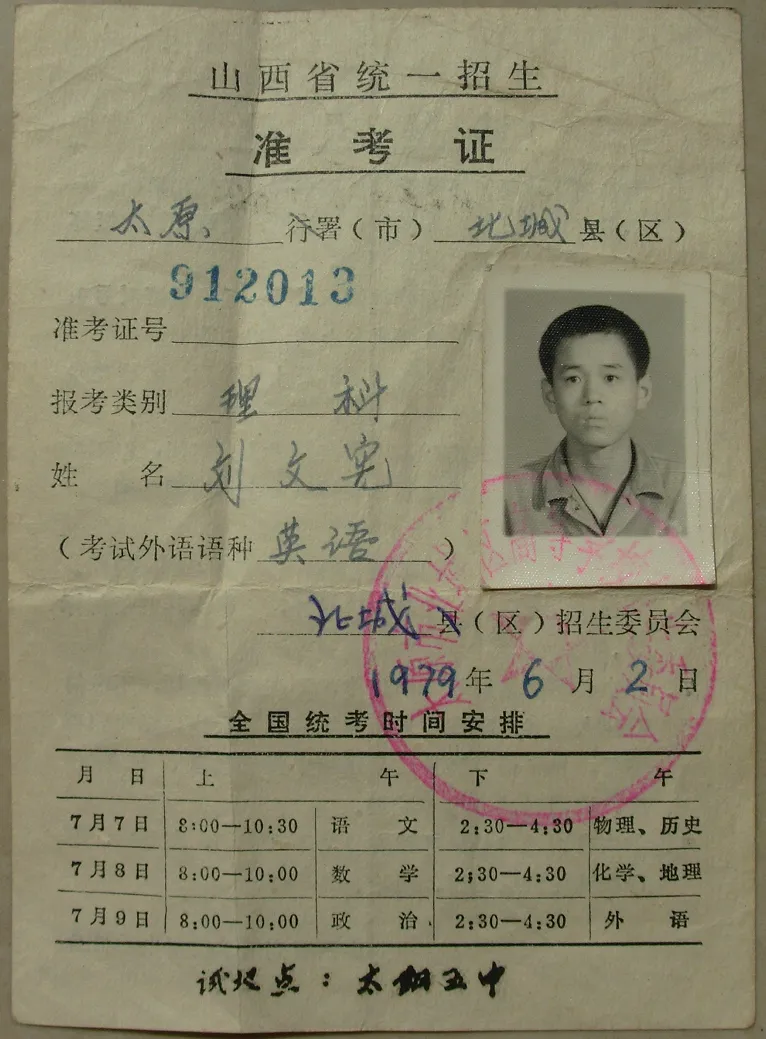 山西省统一招生
准考证
太原 行署(市) 北城 县(区)
912013
准考证号
报考类别 理科
姓名 刘文宪
(考试外语语种 英语 )
北城 县(区)招生委员会
1979年6月2日
全国统考时间安排
月日 上午 下午
7月7日 8:00—10:30 语文 2:30—4:30 物理、历史
7月8日 8:00—10:00 数学 2;30—4:30 化学、地理
7月9日 8:00—10:00 政治 2:30—4:30 外语
点:太钢五中